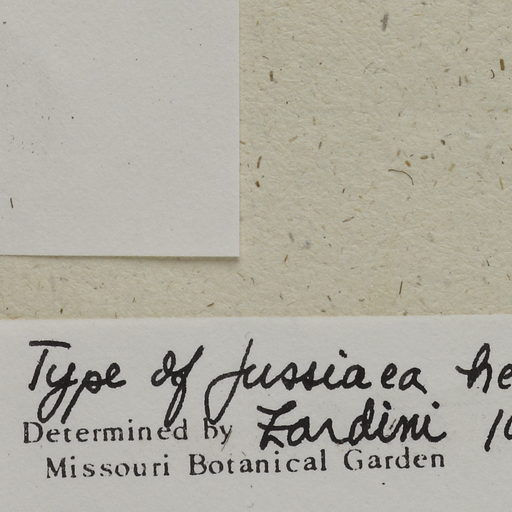 Type of Jussiaea he
Determined by Zardini 10
Missouri Botanical Garden